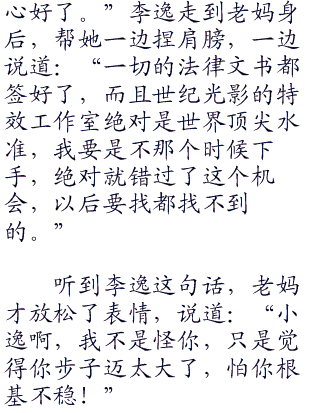 心好了。”李逸走到老妈身
后，帮她一边捏肩膀，一边
说道：“一切的法律文书都
签好了，而且世纪光影的特
效工作室绝对是世界顶尖水
准，我要是不那个时候下
手，绝对就错过了这个机
会，以后要找都找不到
的。”
听到李逸这句话，老妈
才放松了表情，说道：“小
逸啊，我不是怪你，只是觉
得你步子迈太大了，怕你根
基不稳！”